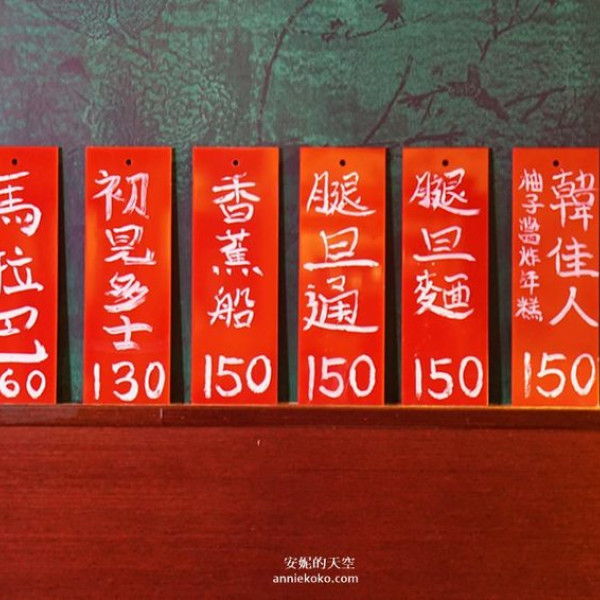 馬拉巴
60
初見多士
130
香蕉船
150
腿旦通
150
腿旦麵
150
韓佳人
柚子醬炸年糕
150
安妮的天空
anniekoko.com